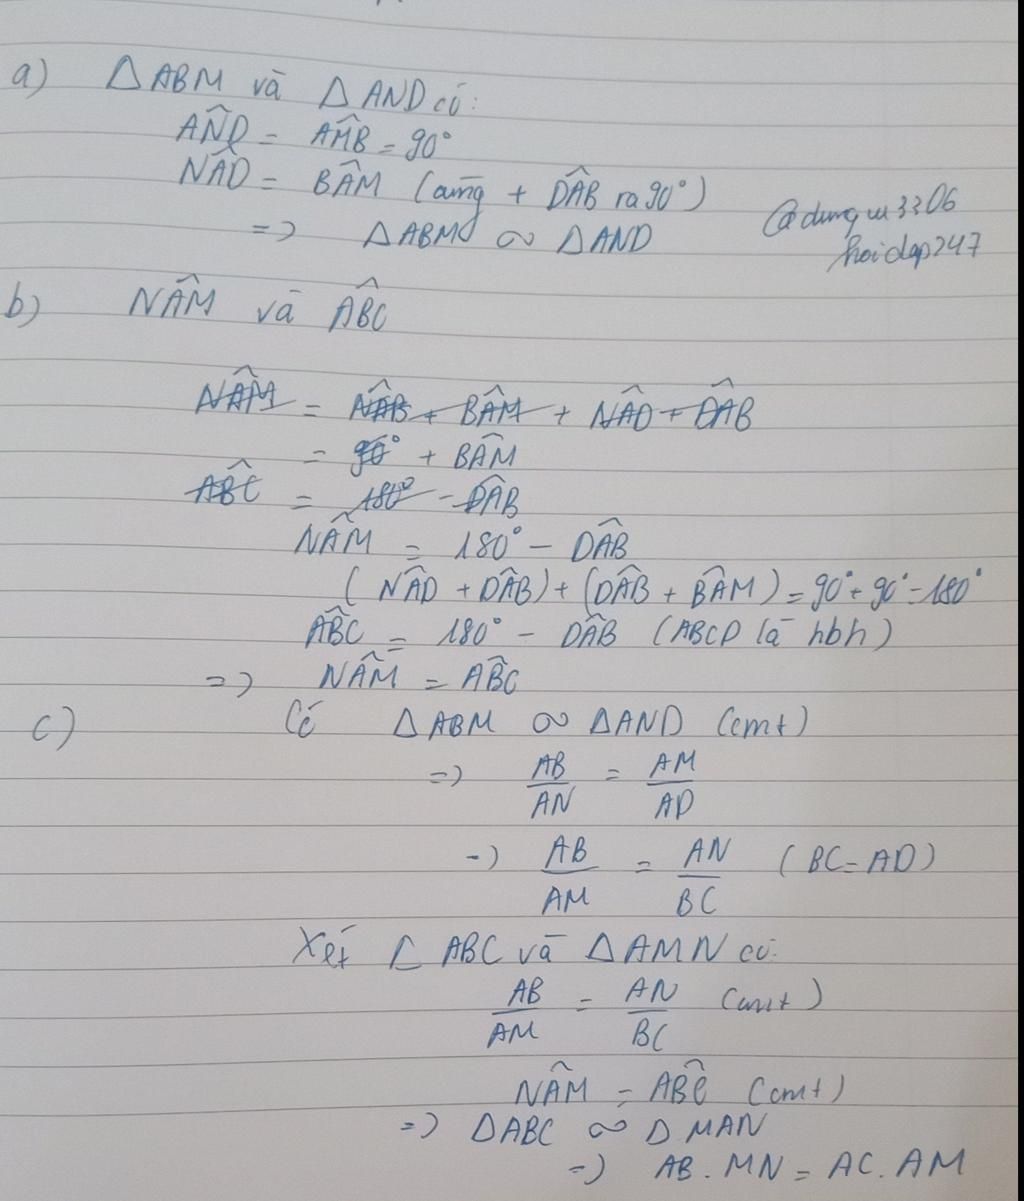 a) △ABM và △AND có:
AN̂D = AM̂B = 90°
NÂD = BÂM (cùng + DÂB ra 90°)
=> △ABM ∽ △AND
@dungw3306
hoidap247
b) NÂM và AB̂C
NÂM = NÂB + BÂM + NÂD + DÂB
= 90° + BÂM
AB̂C = 180° - DÂB
NÂM = 180° - DÂB
(NÂD + DÂB) + (DÂB + BÂM) = 90° + 90° = 180°
AB̂C = 180° - DÂB (ABCD là hbh)
=> NÂM = AB̂C
c) Có △ABM ∽ △AND (cmt)
=> AB/AN = AM/AD
=> AB/AM = AN/BC (BC = AD)
Xét △ABC và △AMN có:
AB/AM = AN/BC (cmt)
NÂM = AB̂C (cmt)
=> △ABC ∽ △MAN
=> AB.MN = AC.AM